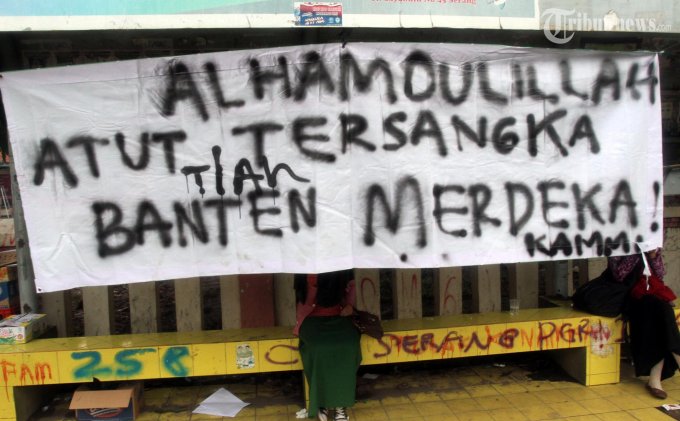 Tribunnews.com
ALHAMDULILLAH
ATUT TERSANGKA
TLAH
BANTEN MERDEKA!
KAMMI
FAM 258
SERANG